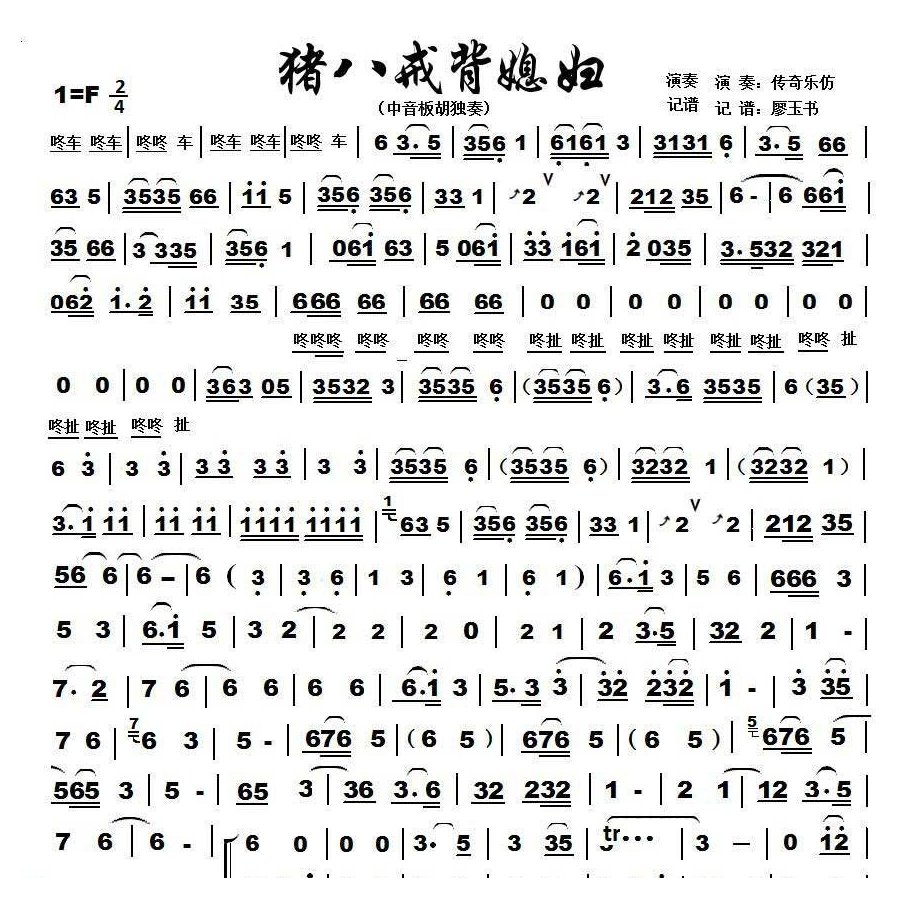 猪八戒背媳妇
1=F 2/4 （中音板胡独奏） 演奏 演 奏：传奇乐仿
记谱 记 谱：廖玉书
咚车 咚车 | 咚咚 车 | 咚车 咚车 | 咚咚 车 | 6 3.5 | 356 1 | 6161 3 | 3131 6 | 3.5 66 |
63 5 | 3535 66 | 11 5 | 356 356 | 33 1 | 2 2 | 212 35 | 6 - | 6 661 |
35 66 | 3 335 | 356 1 | 061 63 | 5 061 | 33 161 | 2 035 | 3.532 321 |
062 1.2 | 11 35 | 666 66 | 66 66 | 0 0 | 0 0 | 0 0 | 0 0 |
咚咚咚 咚咚 咚咚 咚咚 咚扯 咚扯 咚扯 咚扯 咚扯 咚扯 咚咚 扯
0 0 | 0 0 | 363 05 | 3532 3 | 3535 6 |（3535 6）| 3.6 3535 | 6（35）|
咚扯 咚扯 咚咚 扯
6 3 | 3 3 | 33 33 | 3 3 | 3535 6 |（3535 6）| 3232 1 |（3232 1）|
3.1 11 | 11 11 | 1111 1111 | 1 63 5 | 356 356 | 33 1 | 2 2 | 212 35 |
56 6 | 6 – | 6（3 | 3 6 | 1 3 | 6 1 | 6 1）| 6.1 3 | 5 6 | 666 3 |
5 3 | 6.1 5 | 3 2 | 2 2 | 2 0 | 2 1 | 2 3.5 | 32 2 | 1 - |
7.2 | 7 6 | 6 6 | 6 6 | 6.1 3 | 5.3 3 | 32 232 | 1 - | 3 35 |
7 6 | 7 6 3 | 5 - | 676 5 |（6 5）| 676 5 |（6 5）| 5 676 5 |
565 3 | 5 - | 65 3 | 36 3.6 | 32 232 | 1 - | 2 1 | 12 3.5 |
7 6 | 6 - | 6 0 | 0 0 | 3.5 | 3 35 | tr | 3 — | 0 12 |